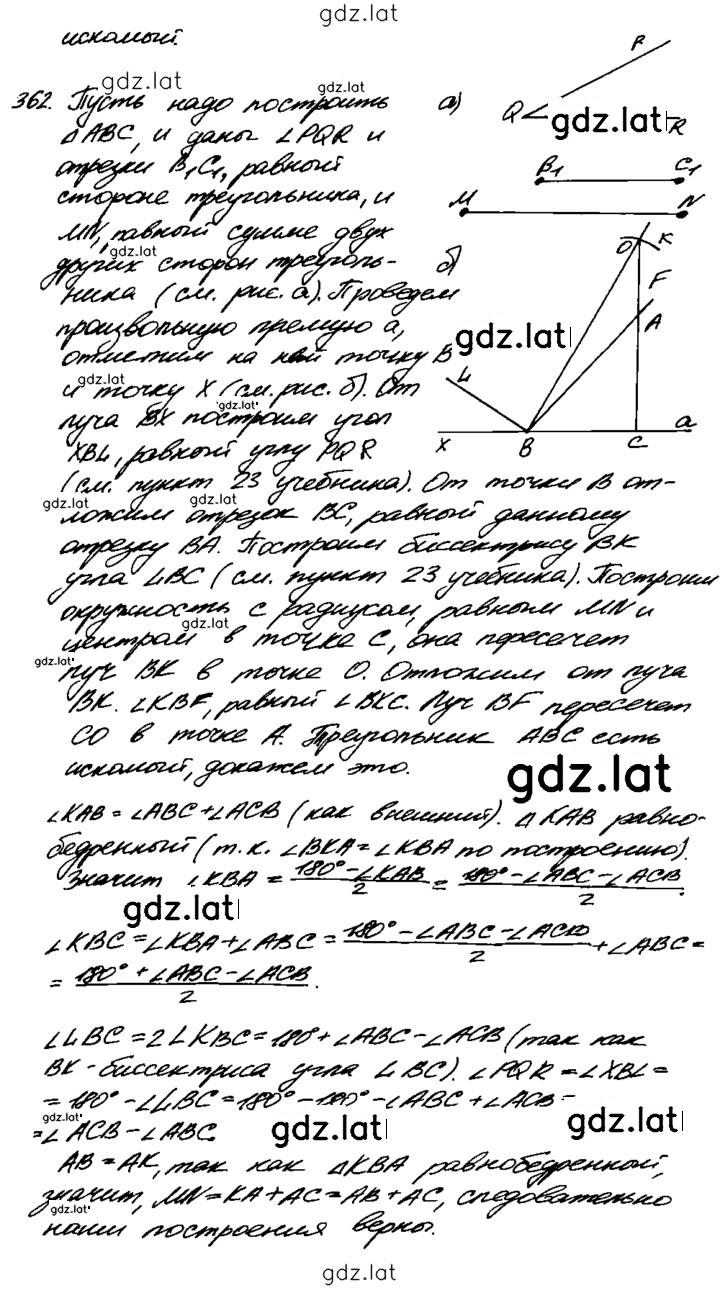 gdz.lat
искомый.
gdz.lat
gdz.lat
362. Пусть надо построить
△ABC, и даны ∠PQR и
отрезки B₁C₁, равный
стороне треугольника, и
MN, равный сумме двух
gdz.lat
других сторон треуголь-
ника (см. рис. а). Проведем
произвольную прямую a,
отметим на ней точку B
gdz.lat
и точку X (см. рис. б). От
gdz.lat
луча BX построим угол
XBL, равный углу PQR
а)
P
Q
gdz.lat
R
B₁ C₁
M N
б)
O K
F
A
gdz.lat
L
X B C a
(см. пункт 23 учебника). От точки B от-
gdz.lat gdz.lat
ложим отрезок BC, равный данному
отрезку BA. Построим биссектрису BK
угла LBC (см. пункт 23 учебника). Построим
окружность с радиусом, равным MN и
gdz.lat
центром в точке C, она пересечет
gdz.lat
луч BK в точке O. Отложим от луча
BK. ∠KBF, равный ∠BKC. Луч BF пересечет
CO в точке A. Треугольник ABC есть
искомый, докажем это.
gdz.lat
∠KAB = ∠ABC + ∠ACB (как внешний). △KAB равно-
бедренный (т.к. ∠BKA = ∠KBA по построению).
Значит ∠KBA = (180° - ∠KAB)/2 = (180° - ∠ABC - ∠ACB)/2.
gdz.lat
∠KBC = ∠KBA + ∠ABC = (180° - ∠ABC - ∠ACB)/2 + ∠ABC =
= (180° + ∠ABC - ∠ACB)/2.
∠LBC = 2∠KBC = 180° + ∠ABC - ∠ACB (так как
BK - биссектриса угла LBC). ∠PQR = ∠XBL =
= 180° - ∠LBC = 180° - 180° - ∠ABC + ∠ACB =
gdz.lat
= ∠ACB - ∠ABC.
gdz.lat
gdz.lat
AB = AK, так как △KBA равнобедренный,
значит, MN = KA + AC = AB + AC, следовательно
gdz.lat
наши построения верны.
gdz.lat